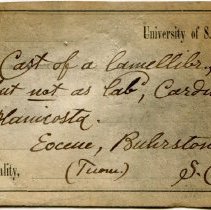 University of S.
Cast of a lamellibr.,
but not as lab'd, Cardi
planicosta.
Eocene, Buhrston
ality,
(Tuomey.) S. C